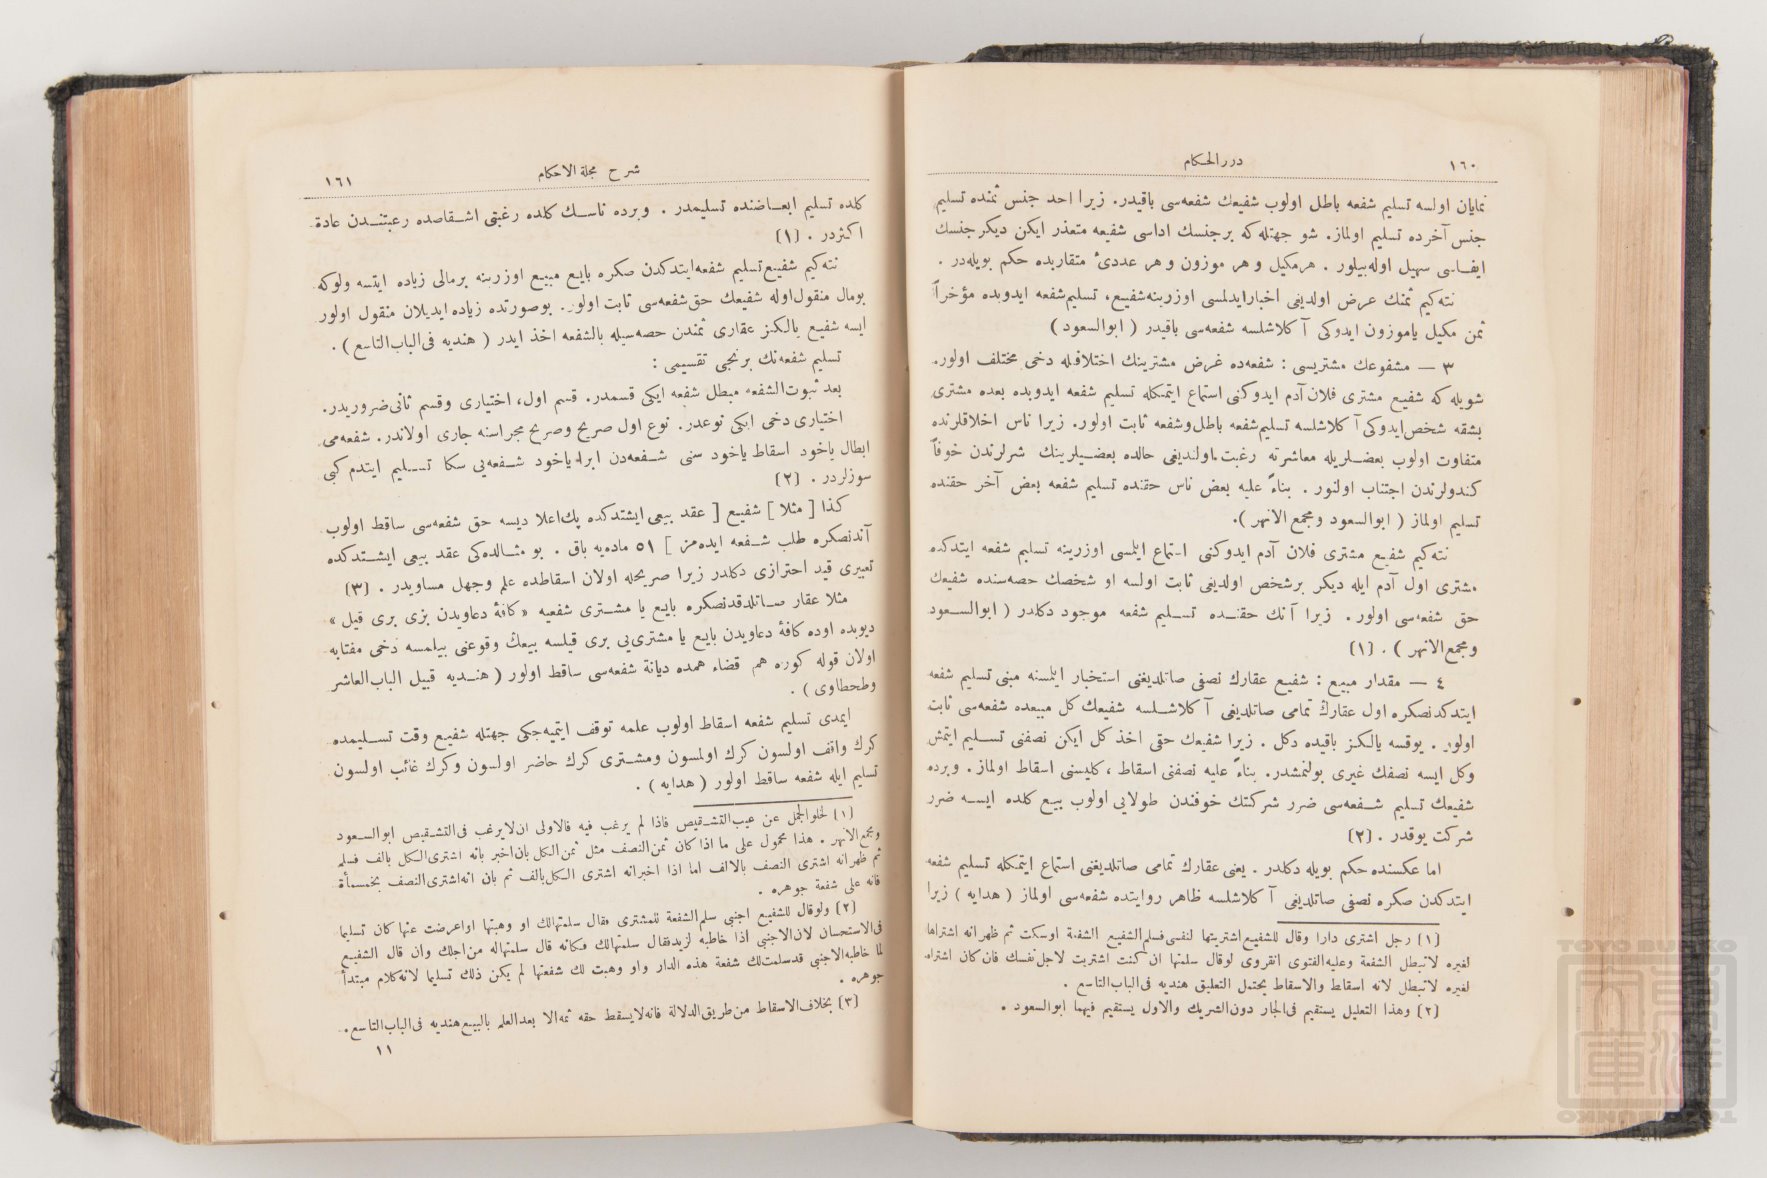 ١٦٠
دررالحكام
نمايان اولسه تسليم شفعه باطل اولوب شفيعك شفعه‌سى باقيدر. زيرا احد جنس ثمنده تسليم
جنس آخرده تسليم اولماز. شو جهتله كه برجنسك اداسى شفيعه متعذر ايكن ديكر جنسك
ايفاسى سهيل اوله‌بيلور . هرمكيل و هر موزون و هر عددئ متقاربده حكم بويله‌در .
نته‌كيم ثمنك عرض اولديغى اخبارايدلمسى اوزرينه‌شفيع، تسليم‌شفعه ايدوبده مؤخراً
ثمن مكيل ياموزون ايدوكى آ كلاشلسه شفعه‌سى باقيدر ( ابوالسعود )
٣ — مشفوعك مشتريسى : شفعه‌ده غرض مشترينك اختلافيله دخى مختلف اولور.
شويله كه شفيع مشترى فلان آدم ايدوكنى استماع ايتمكله تسليم شفعه ايدوبده بعده مشترى
بشقه شخص‌ايدوكى آ كلاشلسه تسليم‌شفعه باطل‌وشفعه ثابت اولور. زيرا ناس اخلاقلرنده
متفاوت اولوب بعضلريله معاشرته رغبت اولنديغى حالده بعضيلرينك شرلرندن خوفاً
كندولرندن اجتناب اولنور . بناءً عليه بعض ناس حقنده تسليم شفعه بعض آخر حقنده
تسليم اولماز ( ابوالسعود ومجمع الانهر ).
نته‌كيم شفيع مشترى فلان آدم ايدوكنى استماع ايلمسى اوزرينه تسليم شفعه ايتدكده
مشترى اول آدم ايله ديكر برشخص اولديغى ثابت اولسه او شخصك حصه‌سنده شفيعك
حق شفعه‌سى اولور . زيرا آنك حقنده تسليم شفعه موجود دكلدر ( ابوالسعود
ومجمع‌الانهر ) . [١]
٤ — مقدار مبيع : شفيع عقارك نصفى صاتلديغنى استخبار ايلمسنه مبنى تسليم شفعه
ايتدكدنصكره اول عقارك تمامى صاتلديغى آ كلاشلسه شفيعك كل مبيعده شفعه‌سى ثابت
اولور . يوقسه يالكز باقيده دكل . زيرا شفيعك حقى اخذ كل ايكن نصفنى تسليم ايتمش
وكل ايسه نصفك غيرى بولنمشدر. بناءً عليه نصفنى اسقاط ، كليسنى اسقاط اولماز . وبرده
شفيعك تسليم شفعه‌سى ضرر شركتك خوفندن طولايى اولوب بيع كلده ايسه ضرر
شركت يوقدر . [٢]
اما عكسنده حكم بويله دكلدر . يعنى عقارك تمامى صاتلديغنى استماع ايتمكله تسليم شفعه
ايتدكدن صكره نصفى صاتلديغى آ كلاشلسه ظاهر روايتده شفعه‌سى اولماز ( هدايه ) زيرا
[١] رجل اشترى دارا وقال للشفيع‌اشتريتها لنفسى‌فسلم‌الشفيع الشفعة اوسكت ثم ظهر انه اشتراها
لغيره لاتبطل الشفعة وعليه‌الفتوى انقروى لوقال سلمتها ان كنت اشتريت لاجل نفسك فان كان اشتراه
لغيره لاتبطل لانه اسقاط والاسقاط يحتمل التعليق هنديه فى‌الباب‌التاسع .
[٢] وهذا التعليل يستقيم فى‌الجار دون‌الشريك والاول يستقيم فيهما ابوالسعود .
شرح مجلة الاحكام
١٦١
كلده تسليم ابعاضنده تسليمدر . وبرده ناسك كلده رغبتى اشقاصده رغبتندن عادة
اكثردر . [١]
نته‌كيم شفيع تسليم شفعه‌ايتدكدن صكره بايع مبيع اوزرينه برمالى زياده ايتسه ولوكه
بومال منقول‌اوله شفيعك حق‌شفعه‌سى ثابت اولور. بوصورتده زياده‌ايديلان منقول اولور
ايسه شفيع يالكز عقارى ثمندن حصه‌سيله بالشفعه اخذ ايدر ( هنديه فى‌الباب‌التاسع ) .
تسليم شفعه‌نك برنجى تقسيمى :
بعد ثبوت‌الشفعه مبطل شفعه ايكى قسمدر. قسم اول، اختيارى وقسم ثانى‌ضروريدر.
اختيارى دخى ايكى نوعدر. نوع اول صريح وصريح مجراسنه جارى اولاندر. شفعه‌مى
ابطال ياخود اسقاط ياخود سنى شفعه‌دن ابراء ياخود شفعه‌يى سكا تسليم ايتدم كبى
سوزلردر . [٢]
كذا [ مثلا ] شفيع [ عقد بيعى ايشتدكده پك‌اعلا ديسه حق شفعه‌سى ساقط اولوب
آندنصكره طلب شفعه ايده‌مز ] ٥١ ماده‌يه باق . بو مثالده‌كى عقد بيعى ايشتدكده
تعبيرى قيد احترازى دكلدر زيرا صريحله اولان اسقاطده علم وجهل مساويدر . [٣]
مثلا عقار صاتلدقدنصكره بايع يا مشترى شفيعه « كافهٔ دعاويدن بزى برى قيل »
ديوبده اوده كافهٔ دعاويدن بايع يا مشترى‌يى برى قيلسه بيعك وقوعنى بيلمسه دخى مفتابه
اولان قوله كوره هم قضاء همده ديانة شفعه‌سى ساقط اولور ( هنديه قبيل الباب‌العاشر
وطحطاوى ) .
ايمدى تسليم شفعه اسقاط اولوب علمه توقف ايتميه‌جكى جهتله شفيع وقت تسليمده
كرك واقف اولسون كرك اولمسون ومشترى كرك حاضر اولسون وكرك غائب اولسون
تسليم ايله شفعه ساقط اولور ( هدايه ) .
[١] لخلوالجمل عن عيب‌التشقيص فاذا لم يرغب فيه فالاولى ان‌لايرغب فى‌التشقيص ابوالسعود
ومجمع‌الانهر . هذا محمول على ما اذا كان ثمن‌النصف مثل ثمن‌الكل بان‌اخبر بانه اشترى‌الكل بالف فسلم
ثم ظهرانه اشترى النصف بالالف اما اذا اخبرانه اشترى الكل‌بالف ثم بان انه‌اشترى‌النصف بخمسمأة
فانه على شفعة جوهره .
[٢] ولوقال للشفيع اجنبى سلم‌الشفعة للمشترى فقال سلمتهالك او وهبتها اواعرضت عنها كان تسليما
فى‌الاستحسان لان‌الاجنبى اذا خاطبه لزيدفقال سلمتهالك فكانه قال سلمتهاله من‌اجلك وان قال الشفيع
لما خاطبه‌الاجنبى قدسلمت‌لك شفعة هذه الدار واو وهبت لك شفعتها لم يكن ذلك تسليما لانه‌كلام مبتدأ
جوهره .
[٣] بخلاف‌الاسقاط من‌طريق‌الدلالة فانه‌لايسقط حقه ثمه‌الا بعدالعلم بالبيع‌هنديه فى‌الباب‌التاسع.
١١
TOYO BUNKO